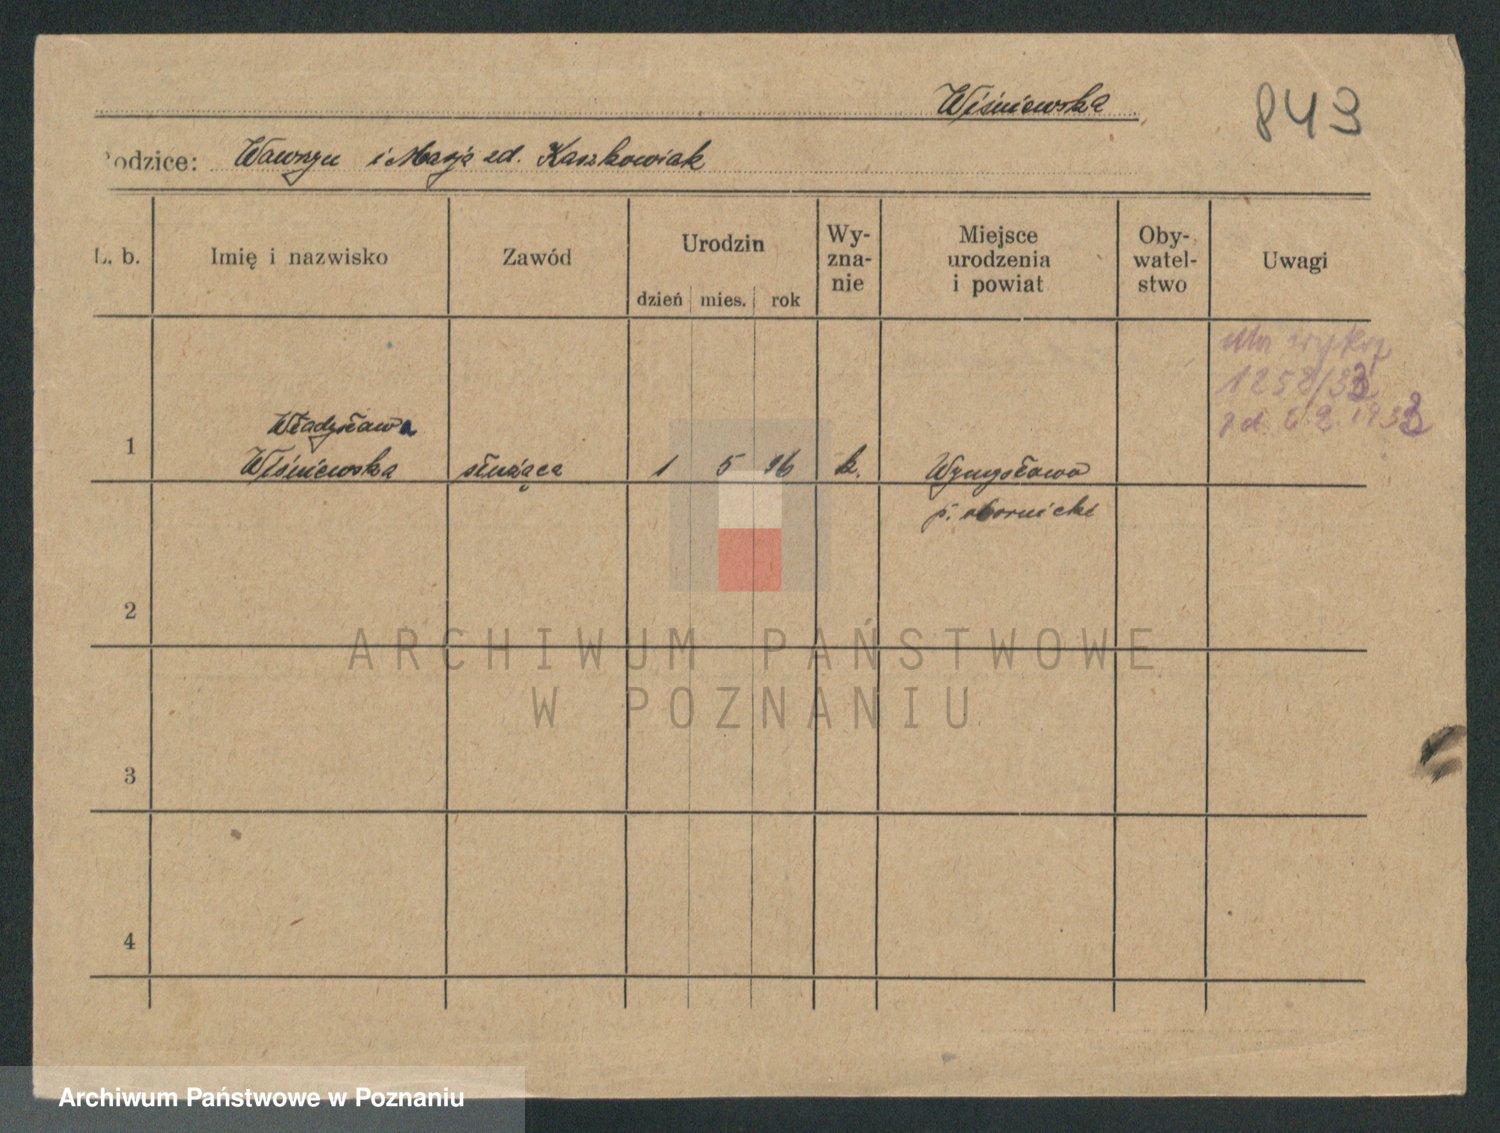 Wiśniewska
843
Rodzice: Wawrzyn i Marja zd. Kaszkowiak
L. b.
Imię i nazwisko
Zawód
Urodzin
dzień mies. rok
Wy-
zna-
nie
Miejsce
urodzenia
i powiat
Oby-
watel-
stwo
Uwagi
1
Władysława
Wiśniewska
służąca
1 5 96
k.
Wymysłowo
p. obornicki
1258/33
z d. 6.2.1933
2
3
4
ARCHIWUM PAŃSTWOWE
W POZNANIU
Archiwum Państwowe w Poznaniu